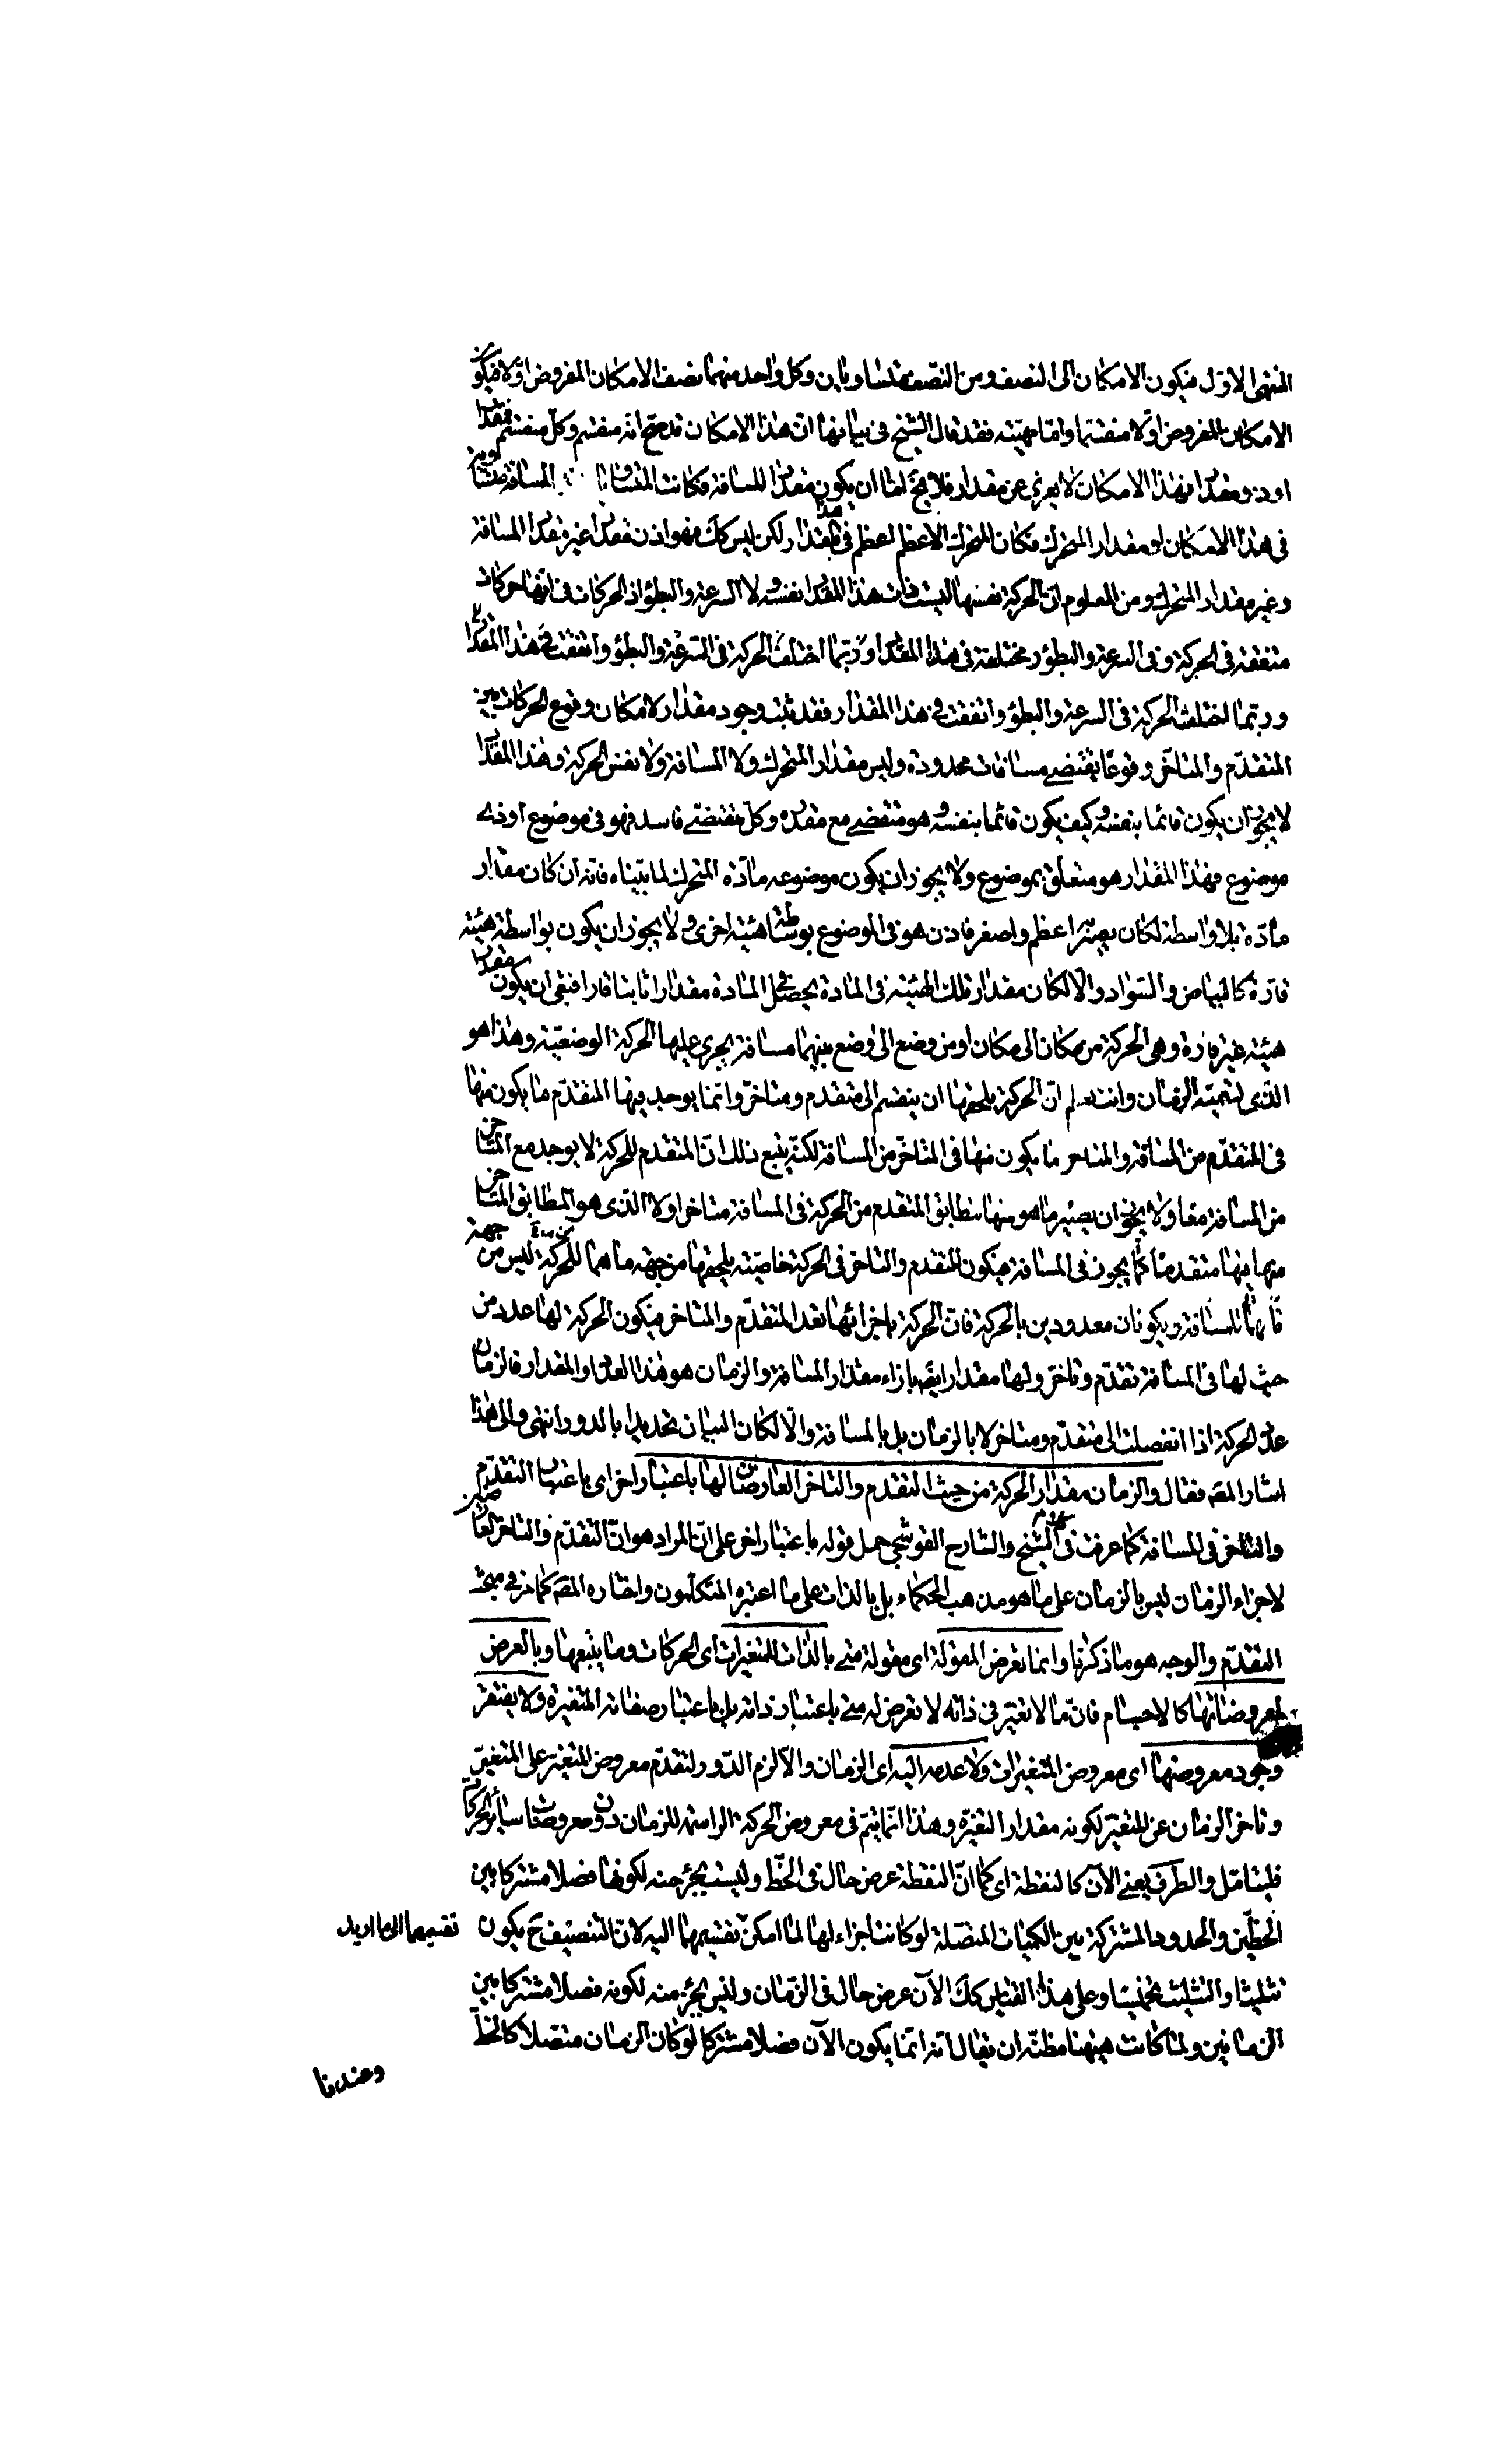 المنتهى الاوّل فيكون الامكان الى النصف ومن النصف متساويان وكل واحد منهما نصف الامكان المفروض اوّلا فيكون
الامكان المفروض اوّلا منقسما وامّا مهيّته فقد قال الشيخ فى بيانها انّ هذا الامكان قد صحّ انه منقسم وكلّ منقسم فمقدار
او ذو مقدار فهذا الامكان لا يعرى عن مقدار فلا يخ امّا ان يكون مقدار المسافة فكانت المتساوية المسافة متساوية
فى هذا الامكان او مقدار المتحرك فكان المتحرك الاعظم اعظم فى هذا المقدار لكن ليس كك فهو اذن مقدار غير مقدار المسافة
وغير مقدار المتحرك ومن المعلوم انّ الحركة نفسها ليست ذات هذا المقدار نفسه ولا السرعة والبطؤ اذ الحركات فى انّها حركات
متفقة فى الحركة وفى السرعة والبطؤ ومختلفة فى هذا المقدار وربّما اختلفت الحركة فى السّرعة والبطؤ واتفقت فى هذا المقدار
وربّما اختلفت الحركة فى السرعة والبطؤ واتفقت فى هذا المقدار فقد ثبت وجود مقدار لامكان وقوع الحركات بين
المتقدّم والمتاخّر وقوعًا يقتضى مسافات محدودة وليس مقدار المتحرك ولا المسافة ولا نفس الحركة وهذا المقدار
لا يجوز ان يكون قائما بنفسه وكيف يكون قائما بنفسه وهو متقضى مع مقدره وكلّ متقضّى فاسد فهو فى موضوع او ذى
موضوع فهذا المقدار هو متعلّق بموضوع ولا يجوز ان يكون موضوعه مادّة المتحرك لما بيّناه فانه ان كان مقدار
مادّة بلا واسطة لكان يصير اعظم واصغر فاذن هو فى الموضوع بوساطة هيئة اخرى ولا يجوز ان يكون بواسطة هيئة
قارّة كالبياض والسّواد والّا لكان مقدار تلك الهيئة فى المادة يحصل فى المادة مقدارا ثابتا قارا فبقى ان يكون مقدار
هيئة غير قارة وهى الحركة من مكان الى مكان او من وضع الى وضع بينهما مسافة يجرى عليها الحركة الوضعيّة وهذا هو
الذى نسمّيه الزمان وانت تعلم انّ الحركة يلحقها ان ينقسم الى متقدم ومتاخّر وانّما يوجد فيها المتقدّم ما يكون منها
فى المتقدّم من المسافة والمتاخر ما يكون منها فى المتاخّر من المسافة لكنّه يتبع ذلك انّ المتقدم للحركة لا يوجد مع المتاخر
من المسافة معًا ولا يجوز ان يصير ما هو منها مطابق المتقدم من الحركة فى المسافة متاخرا ولا الّذى هو المطابق المتاخر
منها منها متقدمًا كما يجوز فى المسافة فيكون للمتقدم والتاخر فى الحركة خاصّية يلحقها من جهة ما هما للحركة ليس من جهة
ما هما للمسافة ويكونان معدودين بالحركة فانّ الحركة باجزائها تعد المتقدّم والمتاخر فيكون الحركة لها عدد من
حيث لها فى المسافة تقدّم وتاخّر ولها مقدار ايضا بازاء مقدار المسافة والزمان هو هذا العدد او المقدار فالزمان
عدد الحركة اذا انفصلت الى متقدّم ومتاخر لا بالزمان بل بالمسافة والّا لكان البيان تحديدا بالدور انتهى والى هذا
اشار المصـ فقال والزمان مقدار الحركة من حيث التقدم والتاخر العارضان لها باعتبار اخر اى باعتبار التقدّم
والتاخر فى المسافة كما عرفت فى كلام الشيخ والشارح القوشجى حمل قوله باعتبار اخر على انّ المراد هو انّ التقدّم والتاخر العارضين
لاجزاء الزمان ليس بالزمان على ما هو مذهب الحكماء بل بالذات على ما اعتبره المتكلمون واختاره المصـ كما مرّ فى مبحث
التقدّم والوجه هو ما ذكرنا وانما تعرض المقولة اى مقولة متى بالذات للمتغيرات اى الحركات وما يتبعها وبالعرض
لمعروضاتها كالاجسام فان ما لا تغيّر فى ذاته لا تعرض له متى باعتبار ذاته بل باعتبار صفاته المتغيرة ولا يفتقر
وجود معروضها اى معروض المتغيرات ولا عدمه اليه اى الزمان والّا لزم الدّور لتقدّم معروض المتغير على المتغيّر
وتاخر الزمان عن المتغيّر لكونه مقدار التغيّر وهذا انّما يتم فى معروض الحركة الراسمة للزمان دون معروضات سائر الحركات
فليتامّل والطرف يعنى الآن كالنقطة اى كما انّ النقطة عرض حال فى الخطّ وليست بجزء منه لكونها فصلا مشتركا بين
الخطّين والحدود المشتركة بين الكميات المتصّلة لو كانت اجزاء لها لما امكن تقسيمها اليه لانّ التنصيف ح يكون تقسيمها الى ما اريد
تثليثا والتثليث تخميسا وعلى هذا القياس كك الآن عرض حال فى الزمان وليس بجزء منه لكونه فصلا مشتركا بين
الزمانين ولما كانت هيهنا مظنّة ان يقال انه انّما يكون الآن فصلا مشتركا لو كان الزمان متصّلا كالخط
وعندنا